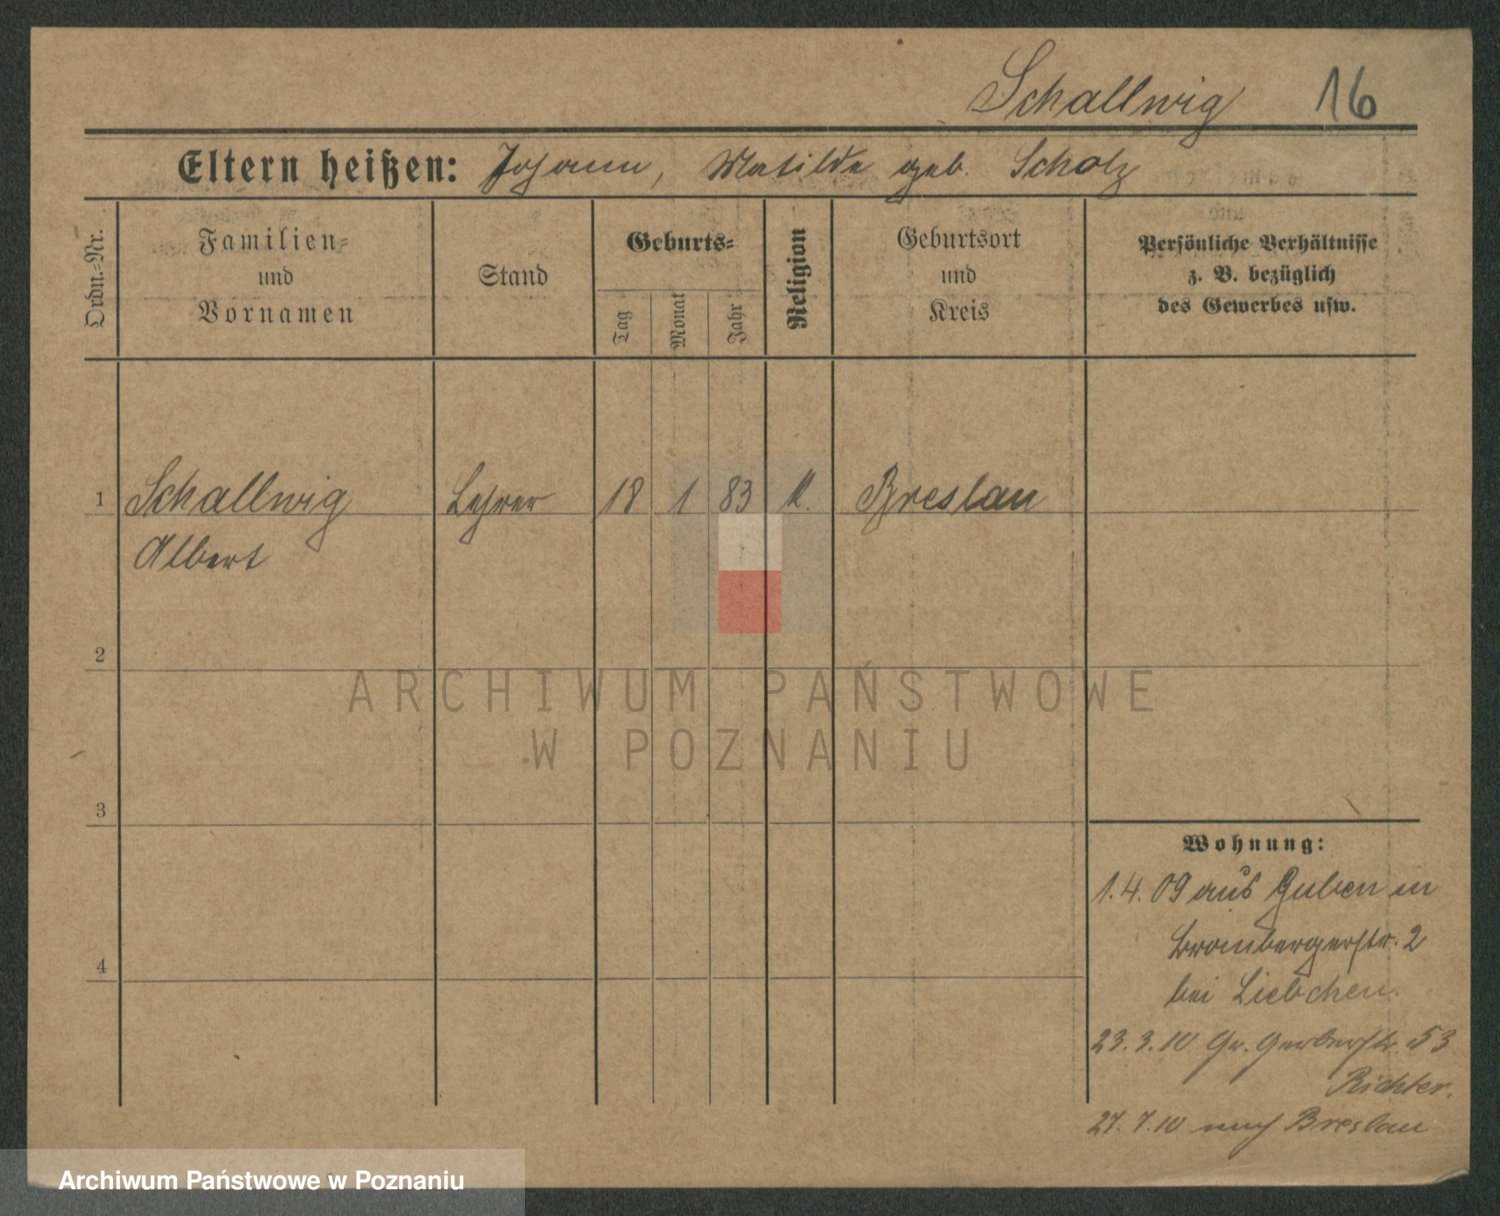 Schallwig 16
Eltern heißen: Johann, Matilde geb. Scholz
Ordn.-Nr.
Familien-
und
Vornamen
Stand
Geburts-
Tag
Monat
Jahr
Religion
Geburtsort
und
Kreis
Persönliche Verhältnisse
z. B. bezüglich
des Gewerbes usw.
1 Schallwig Lehrer 18 1 83 k. Breslau
Albert
2
3
4
Wohnung:
1.4.09 aus Guben in
Brombergerstr. 2
bei Liebchen.
23.3.10 Gr. Gerberstr. 53
Richter.
27.7.10 nach Breslau
ARCHIWUM PAŃSTWOWE
W POZNANIU
Archiwum Państwowe w Poznaniu